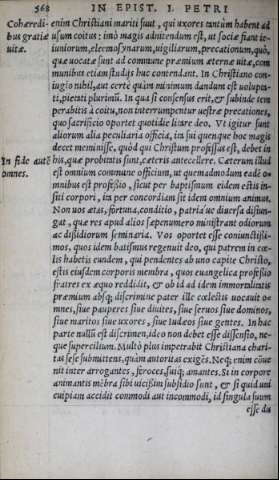 568 IN EPIST. I. PETRI
Cohæredi- enim Christiani mariti sunt, qui uxores tantùm habent ad
bus gratiæ usum coitus: imò magis adnitendum est, ut sociæ fiant ie
uitæ. iuniorum, eleemosynarum, uigiliarum, precationum, quò,
quæ uocatæ sunt ad commune præmium æternæ uitæ, com
munibus etiam studijs huc contendant. In Christiano con
iugio nihil, aut certè quàm minimum dandum est uolupta-
ti, pietati plurimũ. In qua si consensus erit, & subinde tem
perabitis à coitu, non interrumpentur uestræ precationes,
quo sacrificio oportet quotidie litare deo. Vt igitur sunt
aliorum alia peculiaria officia, in sui quenque hoc magis
decet meminisse, quòd qui Christum professus est, debet in
In fide autẽ his, quæ probitatis sunt, cæteris antecellere. Cæterum illud
omnes. est omnium commune officium, ut quemadmodum eadẽ o-
mnibus est professio, sicut per baptismum eidem estis in-
siti corpori, ita per concordiam sit idem omnium animus.
Non uos ætas, fortuna, conditio, patria ue diuersa disiun-
gat, quæ res apud alios sæpenumero ministrant odiorum
ac dissidiorum seminaria. Vos oportet esse coniunctissi-
mos, quos idem batismus regenuit deo, qui patrem in cœ-
lis habetis eundem, qui pendentes ab uno capite Christo,
estis eiusdem corporis membra, quos euangelica professio
fratres ex æquo reddidit, & ob id ad idem immortalitatis
præmium absq; discrimine pater ille cœlestis uocauit o-
mnes, siue pauperes siue diuites, siue seruos siue dominos,
siue maritos siue uxores, siue iudæos siue gentes. In hac
parte nullũ est discrimen, ideo non debet esse dissensio, ne-
que supercilium. Multò plus impetrabit Christiana chari-
tas sese submittens, quàm autoritas exigẽs. Neq; enim cõue
nit inter arrogantes, feroces, suiq; amantes. Si in corpore
animantis mẽbra sibi uicissim subsidio sunt, & si quid uni
cuipiam accidit commodi aut incommodi, id singula suum
esse du